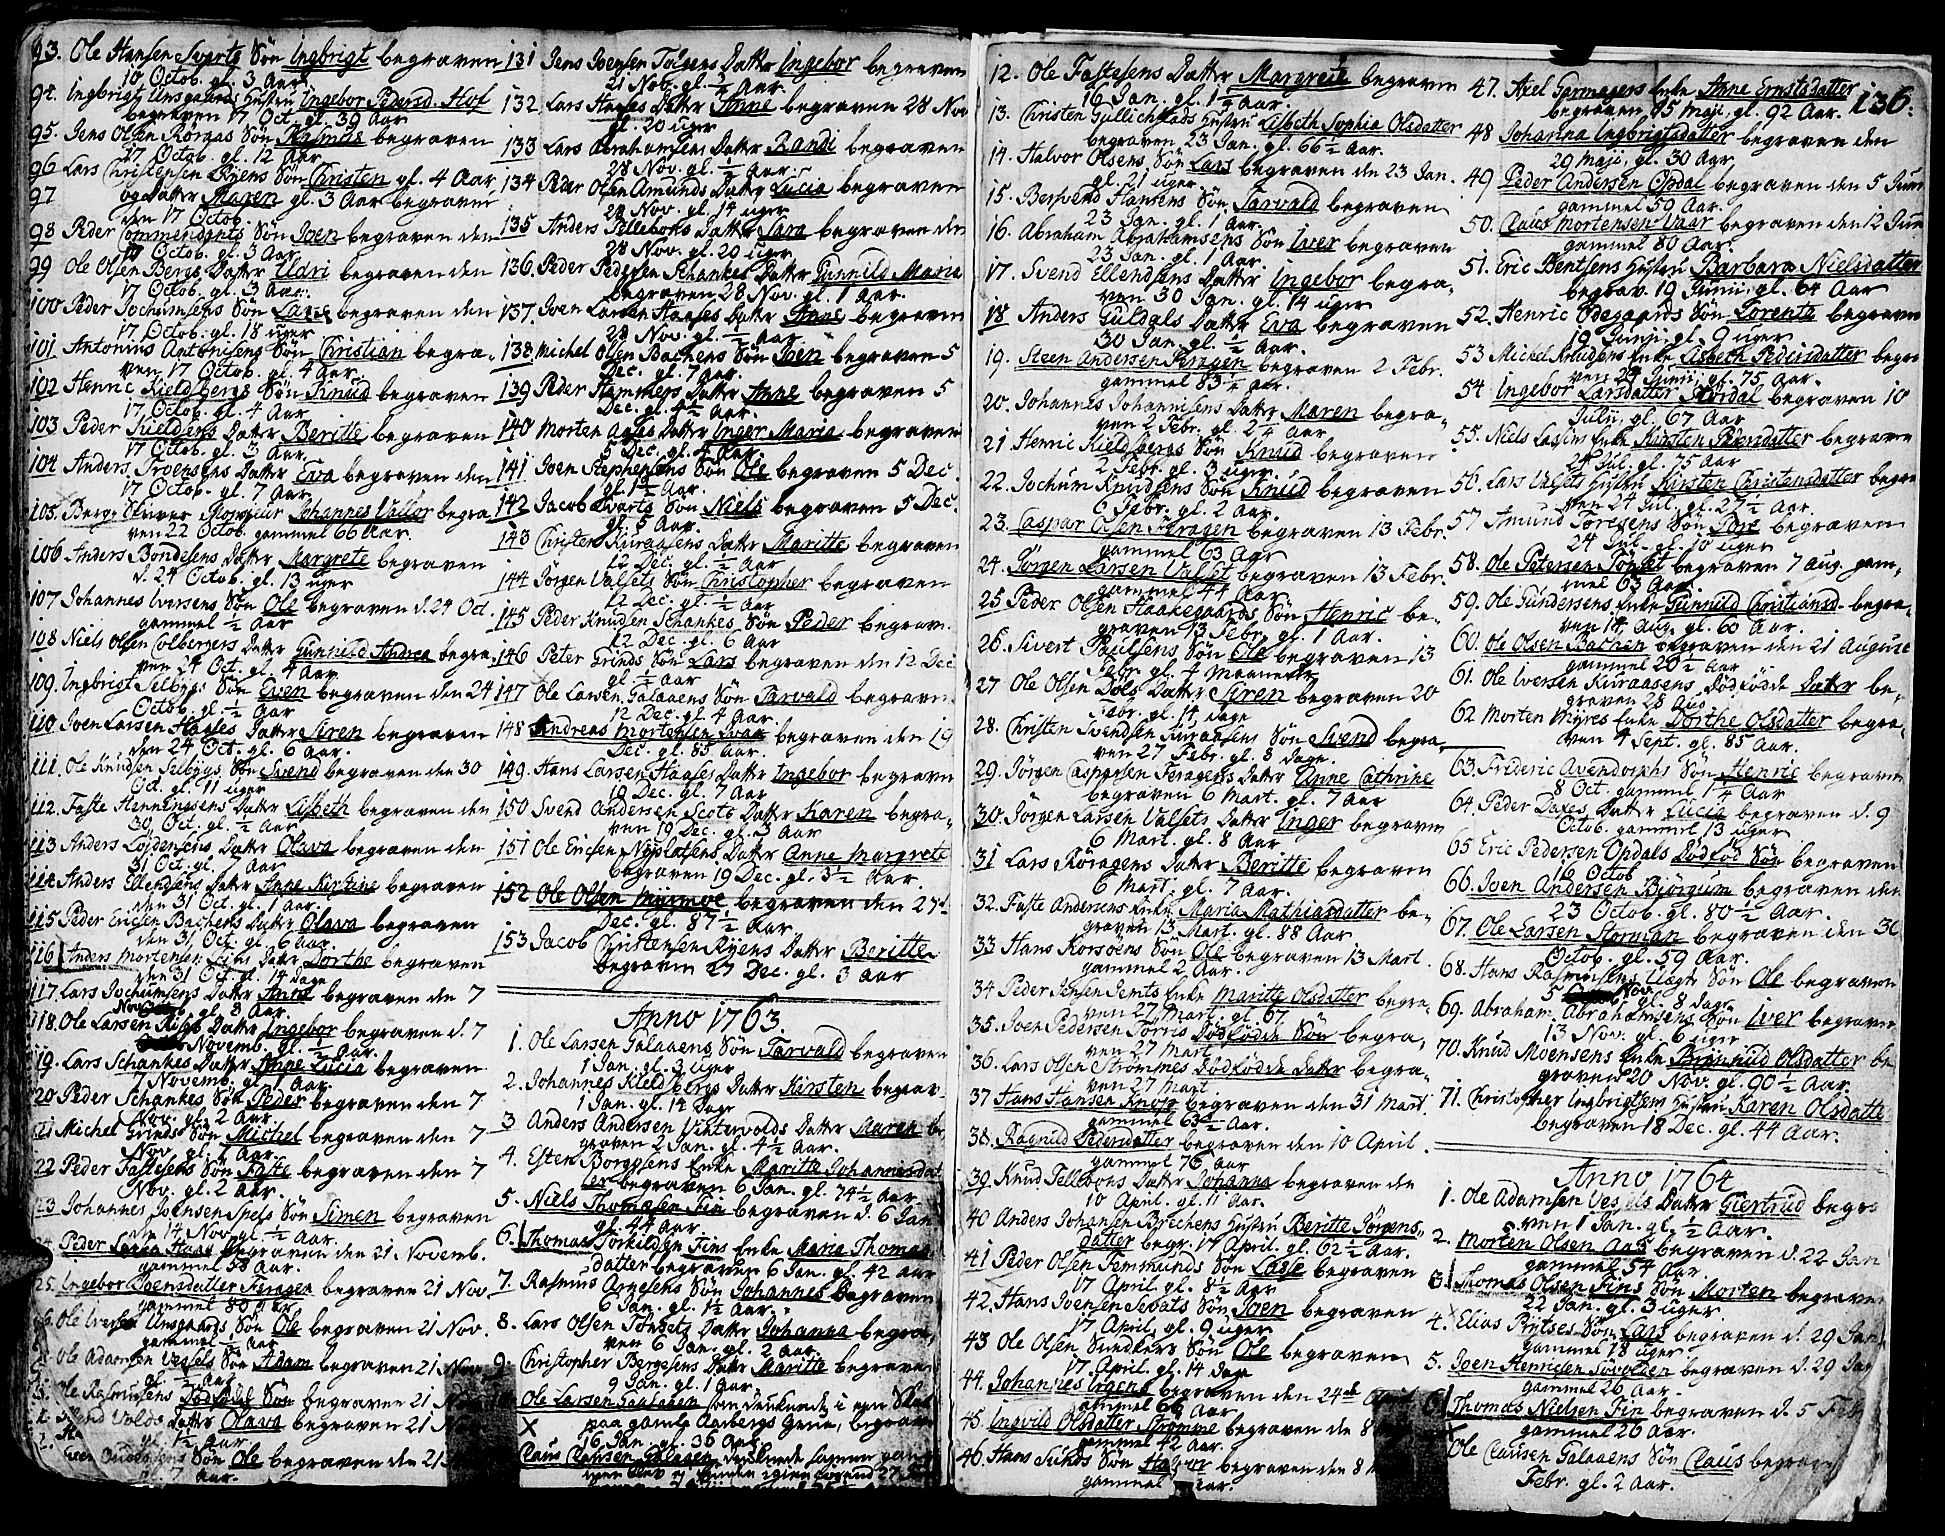 93. Ole Hansen Svarts Søn Ingbrigt begraven
10 Octob. gl. 3 Aar
94. Ingbrigt Unsgaards Hustru Ingebor Pedersd. Hof
begraven 17 Oct. gl. 39 Aar
95. Jens Olsen Røraas Søn Rasmus begraven
17 Octob. gl. 12 Aar
96 Lars Christensen Ryens Søn Christen gl. 4 Aar
97 og Datter Maren gl. 3 Aar begraven
den 17 Octob.
98 Peder Commendants Søn Joen begraven den
Octob. gl. 3 Aar
99 Ole Olsen Bergs Datter Eldri begraven den
17 Octob. gl. 3 Aar.
100 Peder Jochumsens Søn Lasse begraven den
17 Octob. gl. 18 uger
101 Antonius Antonisens Søn Christian begra-
ven 17 Octob. gl. 4 Aar.
102 Henric Kieldbergs Søn Knud begraven
17 Octob. gl. 4 Aar
103 Peder Datter Beritte begraven
17 Octob. gl. 3 Aar.
104 Anders Datter Eva begraven den
17 Octob. gl. 7 Aar
105. Berg Skriver Monsieur Johannes begra-
ven 22 Octob. gammel 66 Aar.
106 Anders Bondesens Datter Margrete begraven
d. 24 Octob. gl. 13 uger
107 Johannes Iversens Søn Ole begraven d. 24 Oct.
gammel ½ Aar
108 Niels Olsen Colbergers Datter Gunnild Andrea begra-
ven 24 Oct. gl. 4 Aar
109. Ingbrigt Selbygs Søn Even begraven den 24
Octob. gl. ½ Aar
110 Joen Larsen Haases Datter Siren begraven
den 24 Oct. gl. 6 Aar.
111. Ole Knudsen Selbygs Søn Svend begraven den 30
Oct. gl. 11 uger
112. Faste Henningsens Datter Lisbeth begraven den
30. Oct. gl. ½ Aar
113 Anders Datter Olava begraven den
31 Oct. gl. Aar
114 Anders Ellensens Datter Anne Kirstine begraven
den 31 Oct. gl. 1 Aar.
115 Peder Ericsen Bachens Datter Olava begraven
den 31 Oct. gl. 6 Aar.
116 Anders Mortensen Fins Datter Dorthe begraven
den 31 Oct. gl. 14 Dage
117 Lars Jochumsens Datter Anne begraven den 7
Nov. gl. 8 Aar.
118. Ole Larsen Datter Ingebor begraven d. 7
Novemb. gl. ½ Aar.
119. Lars Schankes Datter Anne Lucia begraven
7 Novemb. gl. 1 Aar.
120 Peder Schankes Søn Peder begraven den 7
Nov. gl. 2 Aar.
121 Michel Grinds Søn Michel begraven den 7
Nov. gl. Aar.
122 Peder Fastesens Søn Faste begraven den 7
Nov. gl. 2 Aar.
123 Johannes Joensen Spels Søn Simen begraven
den 14 Nov. gl. ½ Aar.
Peder begraven den 21 Novemb.
gammel 58 Aar.
25. Ingebor Joensdatter Feragen begraven 21 Nov.
gammel 80 Aar
Ole Iversen Unsgaards Søn Ole begraven 21 Nov.
gammel Aar
Ole Adamsen Vessels Søn Adam begraven 21 Nov.
Ole Rasmusens Dødfødde Søn begraven 21
Volds Datter Olava begraven 21
gl. 1½ Aar
Søn Ole begraven den 21
131 Jens Joensen Tolgens Datter Ingebor begraven
21 Nov. gl. ½ Aar.
132 Lars Haases Datter Anne begraven 28 Nov
gl. 20 uger
133 Lars Abrahamsens Datter Randi begraven
28 Nov. gl. ½ Aar.
134 Peder Olsen Amunds Datter Lucia begraven
28 Nov. gl. 14 uger
135 Anders Tellebons Datter Sara begraven den
28 Nov. gl. 20 uger
136. Peder Pedersen Schankes Datter Gunnild Maria
begraven 28 Nov. gl. 1 Aar.
137. Joen Larsen Haases Datter Anne begraven
28 Nov. gl. ½ Aar
138 Michel Olsen Bachens Søn Iven begraven 5
Dec. gl. 7 Aar.
139 Peder Hammers Datter Anne begraven 5
Dec. gl. 4½ Aar.
140 Morten Aases Datter Inger Maria begraven
5 Dec. gl. 4 Aar.
141 Joen Stephensens Søn Ole begraven 5 Dec.
gl. 1½ Aar.
142 Jacob Svarts Søn Niels begraven 5 Dec.
gl. 5 Aar.
143 Christen Kuraasens Datter Maritte begraven
12 Dec. gl. ½ Aar
144 Jørgen Valsets Søn Christopher begraven
12 Dec. gl. ½ Aar
145 Peder Knudsen Schankes Søn Peder begrav.
12 Dec. gl. 6 Aar
146 Peter Grinds Søn Lars begraven den 12 Dec.
gl. ½ Aar
147 Ole Larsen Galaaens Søn Tarvald begraven
12 Dec. gl. 4 Aar.
148 Andreas Mortensen begraven den 19
Dec. gl. 85 Aar.
149. Hans Larsen Haases Datter Ingebor begraven
19 Dec. gl. 7 Aar
150 Svend Andersen Scots Datter Karen begra-
ven 19 Dec. gl. 3 Aar
151 Ole Ericsen Nyplassens Datter Anne Margrete
begraven 19 Dec. gl. 3½ Aar.
152 Ole Olsen Myrmoe begraven den 27de
Dec. gl. 87½ Aar.
153 Jacob Christensen Ryens Datter Beritte
begraven 27 Dec. gl. 3 Aar
Anno 1763.
1. Ole Larsen Galaaens Søn Tarvald begraven
1 Jan. gl. 3 uger
2. Johannes Kieldbergs Datter Kirsten begrav.
1 Jan. gl. 14 Dage
3 Anders Andersen Vintervolds Datter Maren be-
graven 2 Jan. gl. 4½ Aar.
4. Esten Borgosens Enke Maritte Johannisdat
ter begraven 6 Jan. gl. 74½ Aar
5. Niels Thomasen Fin begraven d. 6 Jan
gl. 44 Aar.
6. Thomas Torkildsen Fins Enke Maria Thomas
datter begraven 6 Jan. gl. 42 aar
7. Rasmus Arnesens Søn Johannes begraven
6 Jan. gl. 1½ Aar.
8. Lars Olsen Datter Johanna begra-
ven 6 Jan. gl. 2 Aar.
9. Christopher Bergesens Datter Maritte begraven
9 Jan. gl. 1 Aar.
Ole Larsen Galaaen som druknede i een
X paa gamle Aasbergs Grue, begraven
16 Jan. gl. 36 Aar
Claus Clausen Galaaen druknede
12. Ole Fastesens Datter Margrete begraven
16 Jan. gl. 1½ Aar.
13. Christen Gullichstads Hustru Lisbeth Sophia Olsdatter
begraven 23 Jan. gl. 66½ Aar.
14. Halvor Olsens Søn Lars begraven den 23 Jan.
gl. 21 uger
15. Bersvend Hansens Søn Tarvald begraven
23 Jan. gl. 1 Aar.
16. Abraham Abrahamsens Søn Iver begraven
23 Jan. gl. 1 Aar.
17. Svend Ellendsens Datter Ingebor begra-
ven 30 Jan. gl. 14 uger
18 Anders Guldals Datter Eva begraven
30 Jan. gl. ½ Aar.
19. Steen Andersen Feragen begraven 2 Febr.
gammel 83½ Aar.
20. Johannes Johannisens Datter Maren begra-
ven 2 Febr. gl. 24 Aar
21 Henric Kieldbergs Søn Knud begraven
2 Febr. gl. 3 uger
22. Jochum Knudsens Søn Knud begraven
6 Febr. gl. 2 Aar.
23. Caspar Olsen Feragen begraven 13 Febr.
gammel 63 Aar
24. Jørgen Larsen Valset begraven 13 Febr.
gammel 44 Aar.
25 Peder Olsen Haakegaards Søn Henric be-
graven 13 Febr. gl. 1 Aar.
26. Sivert Paulsens Søn Ole begraven 13
Febr. gl. 4 Maaneder
27 Ole Olsen Dols Datter Siren begraven 20
Febr. gl. 14 dage
28. Christen Svendsen Kuraasens Søn Svend begra-
ven 27 Febr. gl. 8 dage
29. Jørgen Caspersen Feragens Datter Anne Cathrine
begraven 6 Mart. gl. 7 Aar
30. Jørgen Larsen Valsets Datter Inger begraven
6 Mart. gl. 8 Aar
31 Lars Røragens Datter Beritte begraven
6 Mart. gl. 7 Aar.
32. Faste Andersens Enke Maria Mathiasdatter be-
graven 13 Mart. gl. 88 Aar
33 Hans Korsøens Søn Ole begraven 13 Mart.
gammel 2 Aar.
34 Peder Jensen Jemts Enke Maritte Olsdatter begra-
ven 27 Mart. gl. 67
35. Joen Pedersen Torris Dødfødde Søn begra-
ven 27 Mart
36. Lars Olsen Strømmes Dødfødde Datter begra-
ven 27 Mart
37 Hans Hansen Knoph begraven den 31 Mart.
gammel 65½ Aar.
38. Ragnild Pedersdatter begraven den 10 April.
gammel 76 Aar
39. Knud Tellebons Datter Johanna begraven den
10 April. gl. 11 Aar.
40 Anders Johansen Brechens Hustru Beritte Jørgens-
datter begr. 17 April. gl. 62½ Aar.
41 Peder Olsen Femmunds Søn Lasse begraven
17 April. gl. 8½ Aar
42. Hans Joensen Sevats Søn Joen begraven
17 April. gl. 9 uger
43 Ole Olsen Sundkers Søn Ole begraven
17 April. gl. 14 Dage
44. Johannes begraven den 24de
gammel 66 Aar
45. Ingvild Olsdatter Strømme begraven den 8
gammel 42 Aar.
46. Hans Sunds Søn begraven den 8
gammel Aar.
136.
47. Axel Garmagers Enke Anne Ernstsdatter
begraven 15 Maji. gl. 92 Aar.
48 Johanna Ingbrigtsdatter begraven den
29 Maji. gl. 30 Aar.
49 Peder Andersen Opdal begraven den 5 Junii
gammel 59 Aar.
50. Claus Mortensen begraven den 12 Jun
gammel 80 Aar.
51. Eric Bentsens Hustru Barbara Nielsdatter
begrav. 19 Junii. gl. 64 Aar
52. Henric Ødegaards Søn Lorentz begraven
19 Junii. gl. 9 uger
53 Michel Knudsens Enke Lisbeth Pedersdatter begra-
ven 24 Junii. gl. 75 Aar.
54 Ingebor Larsdatter Stordal begraven 10
Julii. gl. 67 Aar
55. Niels Enke Kirsten begraven
24 Jul. gl. 75 Aar
56. Lars Valsets Hustru Kirsten Christensdatter begra-
ven 24 Jul. gl. 27½ Aar.
57 Amund Toresens Søn Tore begraven
24 Jul. gl. 10 uger
58. Ole Petersen begraven 7 Aug. gam-
mel 63 Aar
59. Ole Gundersens Enke Gunnild Christiansd. begra-
ven 14 Aug. gl. 60 Aar.
60. Ole Olsen Bachen begraven den 21 Augusti
gammel 20½ Aar
61. Ole Iversen Kuraasens Dødfødde Datter be-
graven 28 Aug
62 Morten Myres Enke Dorthe Olsdatter begra-
ven 4 Sept. gl. 85 Aar.
63. Frideric Avendorphs Søn Henric begraven
8 Oct. gammel 1¼ Aar
64. Peder Daxes Datter Lucia begraven d. 9
Octob. gammel 13 uger
65 Eric Pedersen Opdals Dødfød Søn begraven
16 Octob
66. Joen Andersen Biørgum begraven den
23 Octob. gl. 80½ Aar.
67. Ole Larsen Storman begraven den 30
Octob. gl. 59 Aar.
68. Hans Rasmusens Uægte Søn Ole begraven
5 Nov. gl. 8 Dage
69. Abraham Abrahamsens Søn Iver begraven
13 Nov. gl. 6 uger
70. Knud Moensens Enke Olsdatter be-
graven 20 Nov. gl. 90½ Aar.
71. Christopher Ingbrigtsens Hustru Karen Olsdatter
begraven 18 Dec. gl. 44 Aar.
Anno 1764
1. Ole Adamsen Vessels Datter Giertrud begra-
ven 1 Jan. gl. ½ Aar.
2. Morten Olsen Aas begraven d. 22 Jan
gammel 54 Aar
3. Thomas Olsen Fins Søn Morten begraven
22 Jan. gl. 3 uger
4. Elias Prytses Søn Lars begraven d. 29 Jan
gammel 18 uger.
5. Joen Henricsen begraven d. 29 Jan
gammel 26 Aar.
6. Thomas Nielsen Fin begraven d. 5 Feb
gammel 26 Aar.
Ole Clausen Galaaens Søn Claus begraven
Febr. gl. 2 Aar.